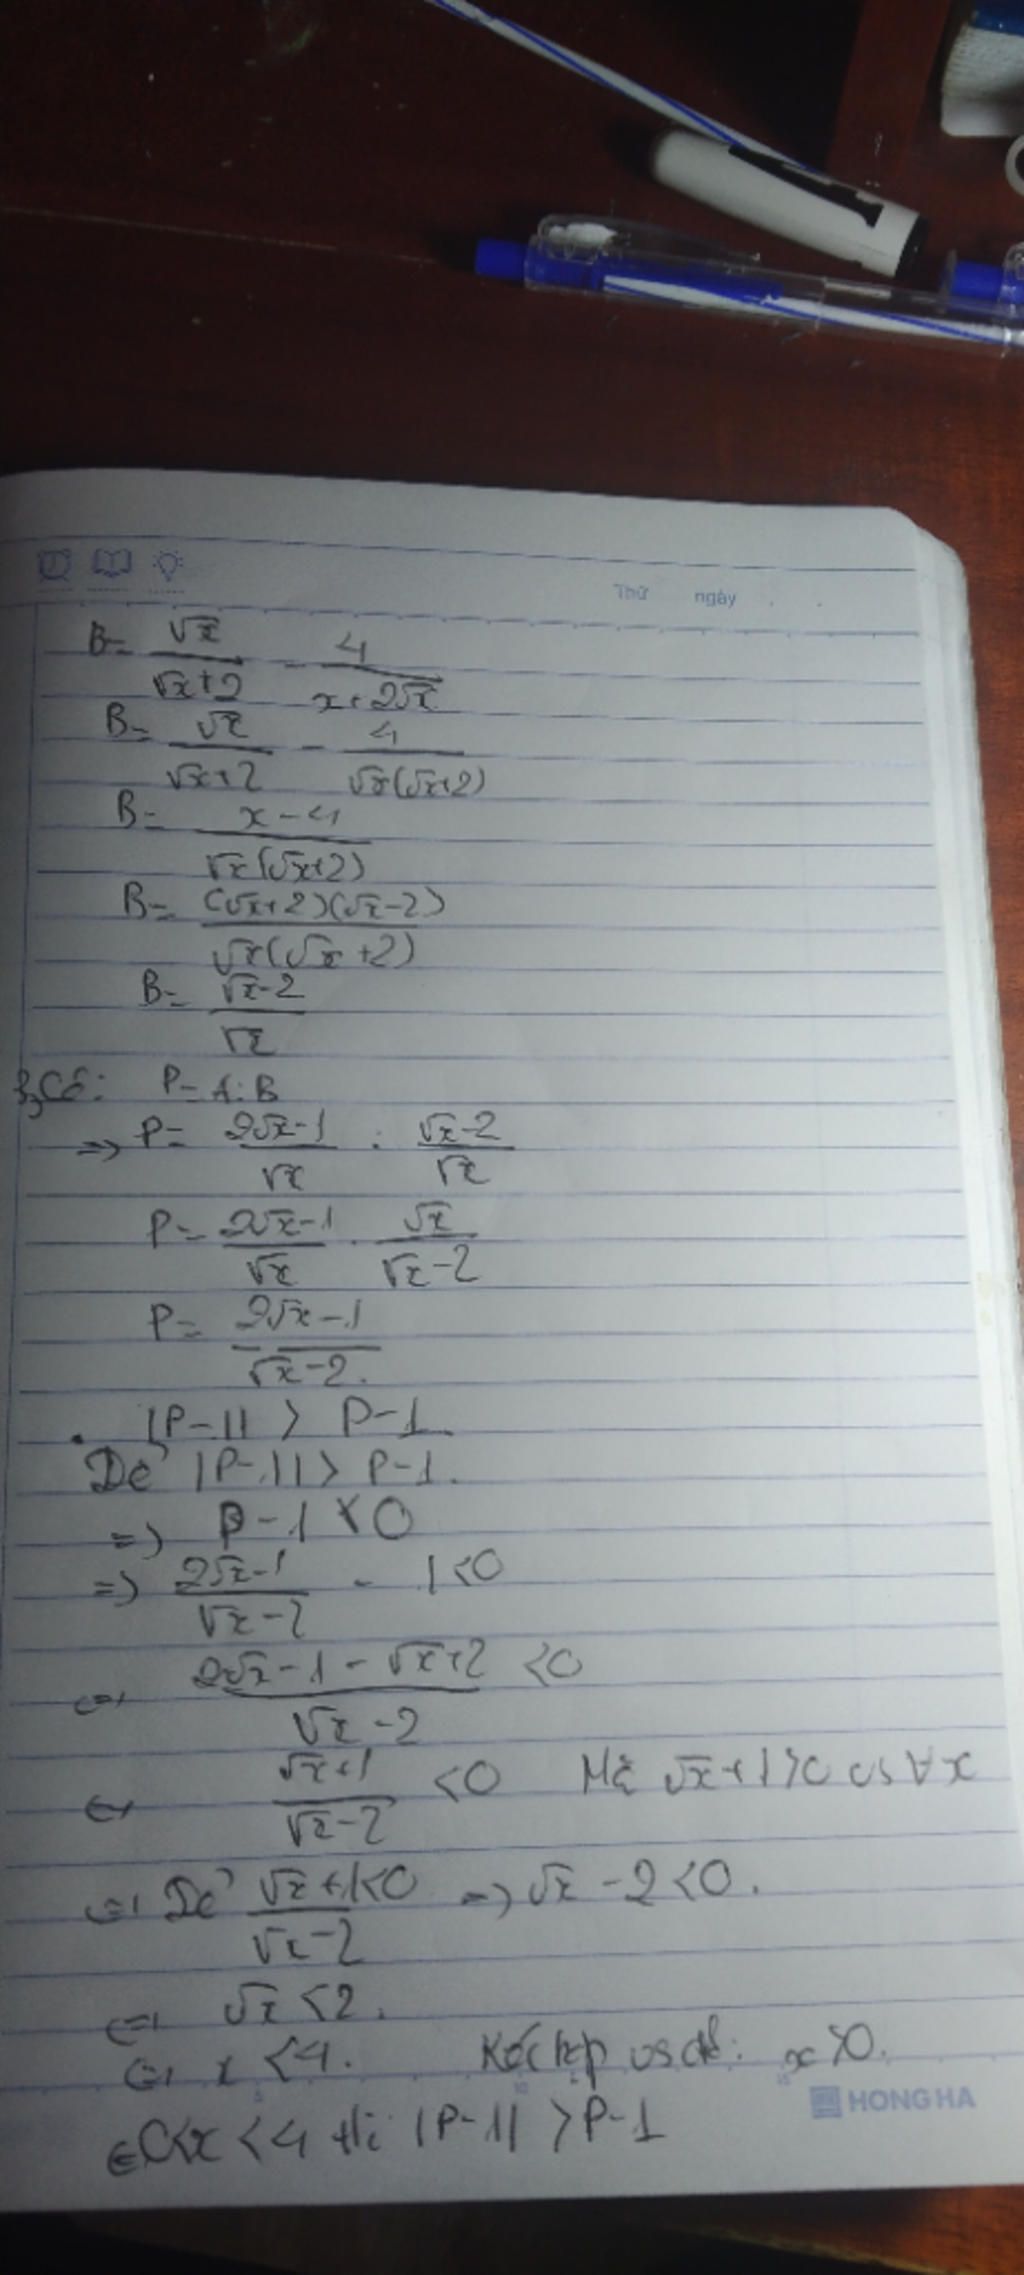 Thứ ngày
B= √x/(√x+2) - 4/(x+2√x)
B= √x/(√x+2) - 4/(√x(√x+2))
B= (x-4)/(√x(√x+2))
B= (√x+2)(√x-2)/(√x(√x+2))
B= (√x-2)/√x
Có: P= A:B
=> P= (2√x-1)/√x : (√x-2)/√x
P= (2√x-1)/√x . √x/(√x-2)
P= (2√x-1)/(√x-2).
. |P-1| > P-1.
Để |P-1| > P-1.
=> P-1 < 0
=> (2√x-1)/(√x-2) - 1 < 0
<=> (2√x-1-√x+2)/(√x-2) < 0
<=> (√x+1)/(√x-2) < 0 Mà √x+1>0 vs ∀x
<=> Để (√x+1)/(√x-2) < 0 => √x-2<0.
<=> √x <2.
<=> x <4. Kết hợp vs đk: x>0.
HONG HA
0<x<4 thì |P-1| >P-1